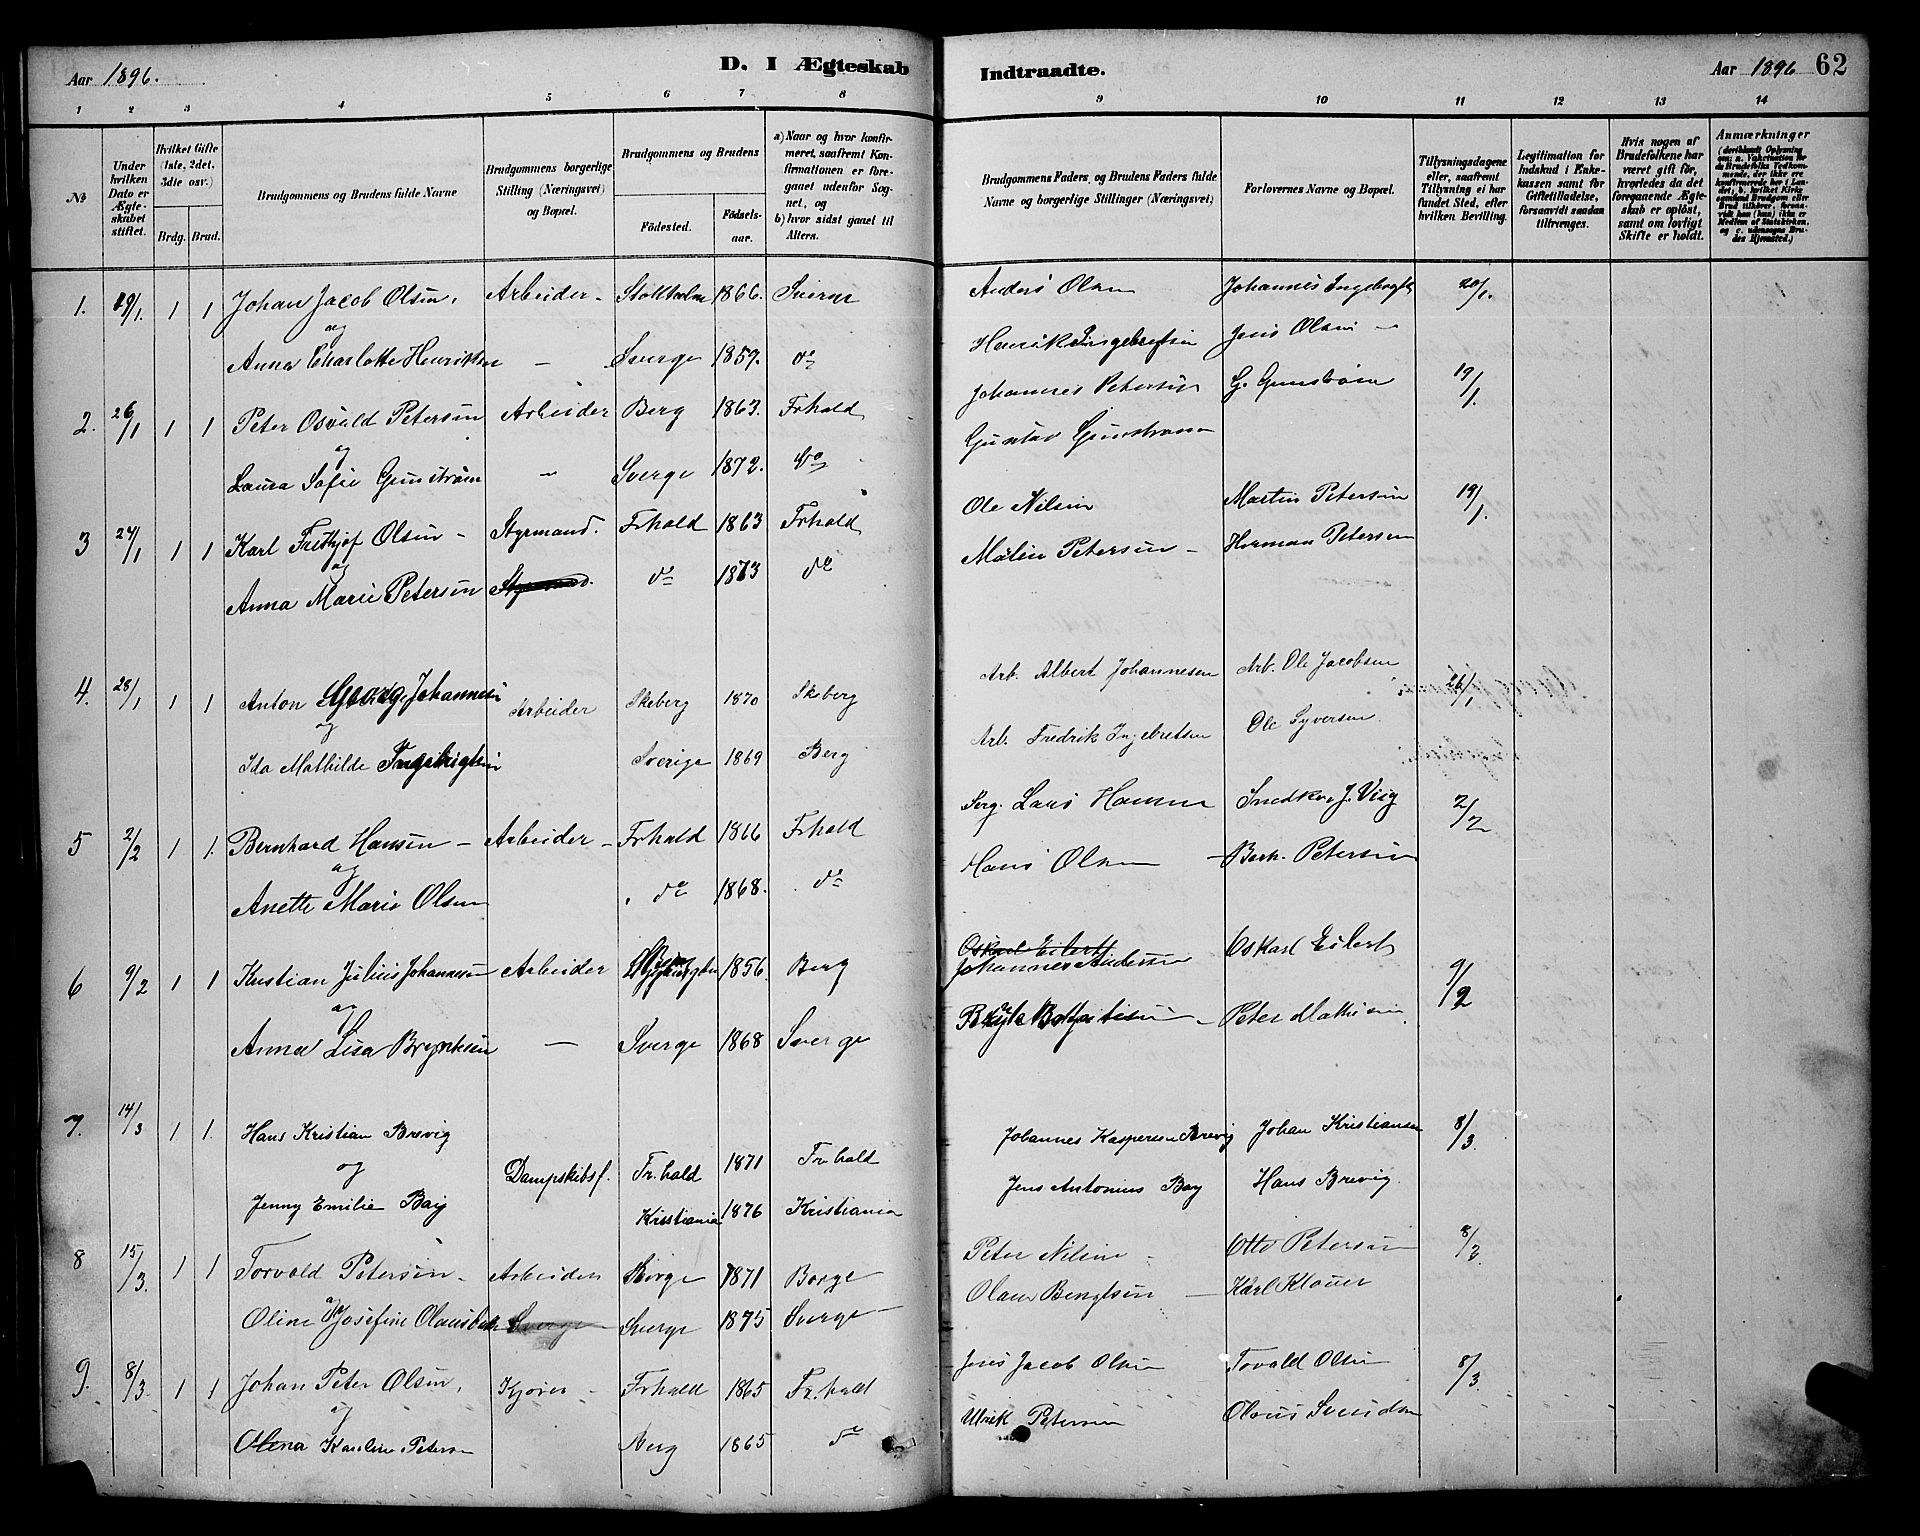 Aar 1896. D. I Ægteskab
1 2 3 4 5 6 7 8
№
Under hvilken Dato er Ægteskabet stiftet.
Hvilket Gifte (1ste, 2det, 3die osv.)
Brdg. Brud.
Brudgommens og Brudens fulde Navne
Brudgommens borgerlige Stilling (Næringsvei) og Bopæl.
Brudgommens og Brudens
Fødested. Fødselsaar.
a) Naar og hvor konfirmeret, saafremt Konfirmationen er foregaaet udenfor Sognet, og
b) hvor sidst gaaet til Alters.
1. 19/1. 1 1 Johan Jacob Olsen, Arbeider - Stokholm 1866. Sverge
og
Anna Charlotte Henriksen — Sverge 1859. do
2. 26/1 1 1 Peter Osvald Petersen Arbeider Berg 1863. Frhald
og
Laura Sofie Grunstrøm — Sverge 1872. do
3 27/1 1 1 Karl Fridtjof Olsen - Styrmand. Frhald 1863 Frhald
og
Anna Marie Petersen do 1873 do
4. 28/1 1 1 Anton Georg Johannesen Arbeider Skeberg 1870 Skeberg
og
Ida Mathilde Ingebrigtsen Sverige 1869 Berg
5 2/2 1 1. Bernhard Hansen - Arbeider - Frhald 1866 Frhald
og
Anette Marie Olsen do 1868. do
6 9/2 1 1 Kristian Julius Johannesen Arbeider 1856 Berg
og
Anna Lisa Bryntesen — Sverge 1868 Sverge
7. 14/3 1 1. Hans Kristian Brevig
og Dampskibsf. Fr.hald 1871 Fr.hald
Jenny Emilie Bay Kristiania 1876 Kristiania
8 15/3. 1 1 Torvald Petersen - Arbeider Borge 1871 Borge
og
Oline Josefine Sverge Sverge 1875 Sverge
9. 8/3. 1 1 Johan Peter Olsen, Kjører - Frhald 1865 Fr.hald
og
Olena Karoline Petersen Berg 1865 do
Indtraadte. Aar 1896 62
9 10 11 12 13 14
Brudgommens Faders, og Brudens Faders fulde Navne og borgerlige Stillinger (Næringsvei)
Forlovernes Navne og Bopæl.
Tillysningsdagene eller, saafremt Tillysning ei har fundet Sted, efter hvilken Bevilling.
Legitimation for Indskud i Enkekassen samt for Giftetilladelse, forsaavidt saadan tiltrænges.
Hvis nogen af Brudefolkene har været gift før, hvorledes da det foregaaende Ægteskab er opløst, samt om lovligt Skifte er holdt.
Anmærkninger (deriblandt Oplysning om: a. Vaksination for de Brudefolks Vedkommende, der ikke ere konfirmerede her i Landet; b. hvilket Kirkesamfund Brudgom eller Brud tilhører, forsaavidt han (hun) ikke er Medlem af Statskirken, og c. udensogns Brudes Hjemsted.)
Anders Olsen Johannes Ingebregts 20/1.
Henrik Ingebretsen Jens Olsen —
Johannes Petersen G. Grunstrøm 19/1.
Gustav Grunstrøm
Ole Nilsen Martin Petersen 19/1.
Malin Petersen - Herman Petersen
Arb. Albert Johannesen Arb. Ole Jacobsen 26/1
Arb. Fredrik Ingebretsen Ole Syversen.
Serg. Lars Hansen Snedker J. Viig 2/2
Hans Olsen - Berh. Petersen
Oskarl Eilert Oskarl Eilert
Johannes Andersen 9/2
- Peter Mathisen.
Johannes Kaspersen Brevig Johan Kristiansen 8/3.
Jens Antonius Bay Hans Brevig.
Peter Nilsen - Otto Petersen 8/3.
Olaus Bengtsen — Karl Klouer
Jens Jacob Olsen Tovald Olsen 8/3.
Ulrik Petersen Olaus Svendsen